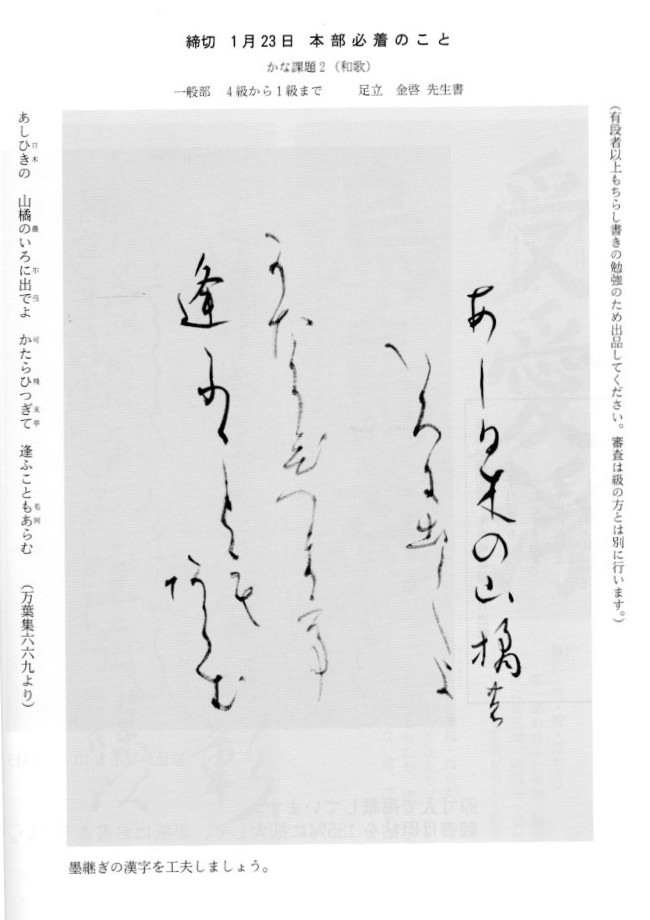 締切 1月23日 本部必着のこと
かな課題2（和歌）
一般部 4級から1級まで 足立 金啓 先生書
（有段者以上もちらし書きの勉強のため出品してください。審査は級の方とは別に行います。）
あし日木の山橘
いろ尓出しよ
可たら飛つ支亭
逢ふこと毛
阿らむ
あしひきの 山橘のいろに出でよ かたらひつぎて 逢ふこともあらむ （万葉集六六九より）
墨継ぎの漢字を工夫しましょう。